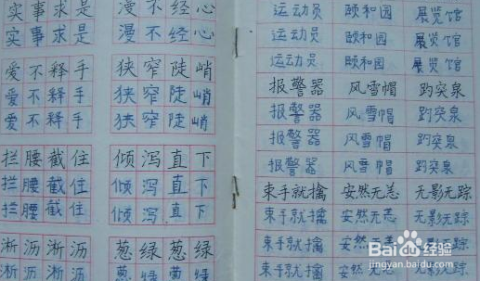 实事求是 漫不经心
实事求是 漫不经心
实事求是 漫不经心
爱不释手 狭窄陡峭
爱不释手 狭窄陡峭
爱不释手 狭窄陡峭
拦腰截住 倾泻直下
拦腰截住 倾泻直下
拦腰截住 倾泻直下
淅沥淅沥 葱绿葱绿
淅沥淅沥 葱绿葱绿
运动员 颐和园 展览馆
运动员 颐和园 展览馆
运动员 颐和园 展览馆
报警器 风雪帽 趵突泉
报警器 风雪帽 趵突泉
报警器 风雪帽 趵突泉
报警器 风雪帽 趵突泉
束手就擒 安然无恙 无影无踪
束手就擒 安然无恙 无影无踪
束手就擒 安然无恙 无影无踪
束手就擒 安然无恙 无影无踪
Baidu经验
jingyan.baidu.com